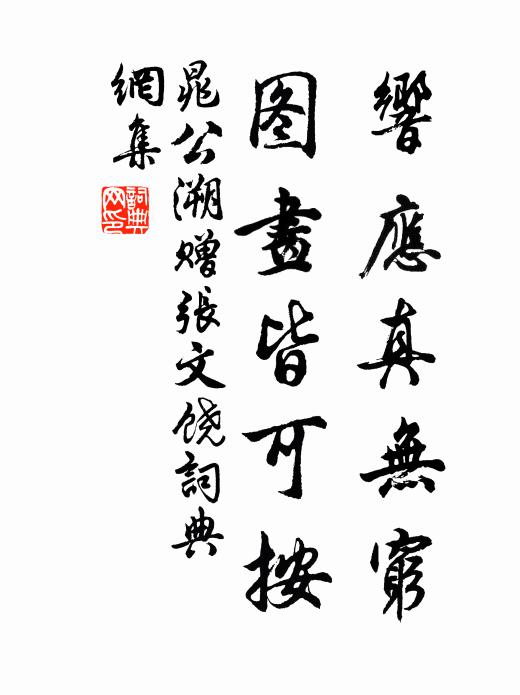 響應真無窮
图畫皆可按
晁公溯贈張文饶詞典
網集
詞典
网印